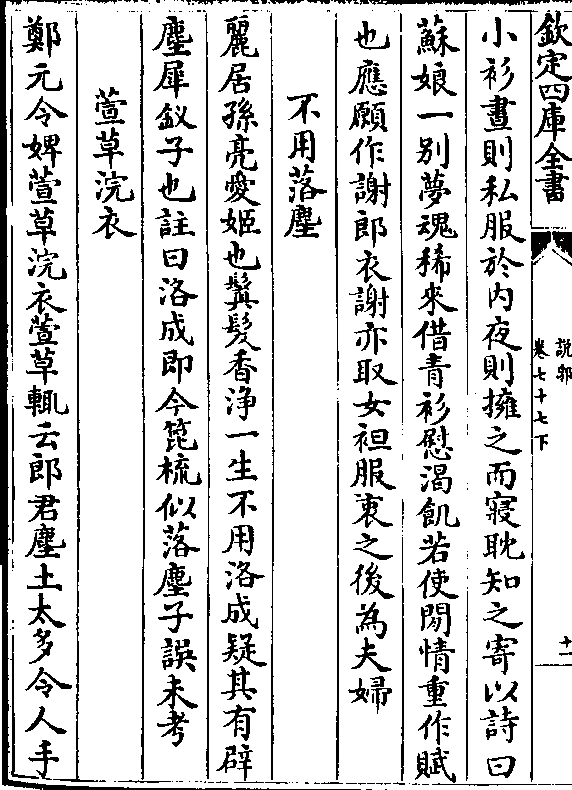 欽定四庫全書
說郛
卷七十七下
十一
小衫晝則私服於内夜則擁之而寢耽知之寄以詩曰
蘇娘一别夢魂稀來借青衫慰渴飢若使閒情重作賦
也應願作謝郎衣謝亦取女袒服衷之後為夫婦
不用落塵
麗居孫亮愛姬也鬒髮香淨一生不用洛成疑其有辟
塵犀釵子也註曰洛成即今篦梳似落塵子誤未考
萱草浣衣
鄭元令婢萱草浣衣萱草輒云郎君塵土太多令人手